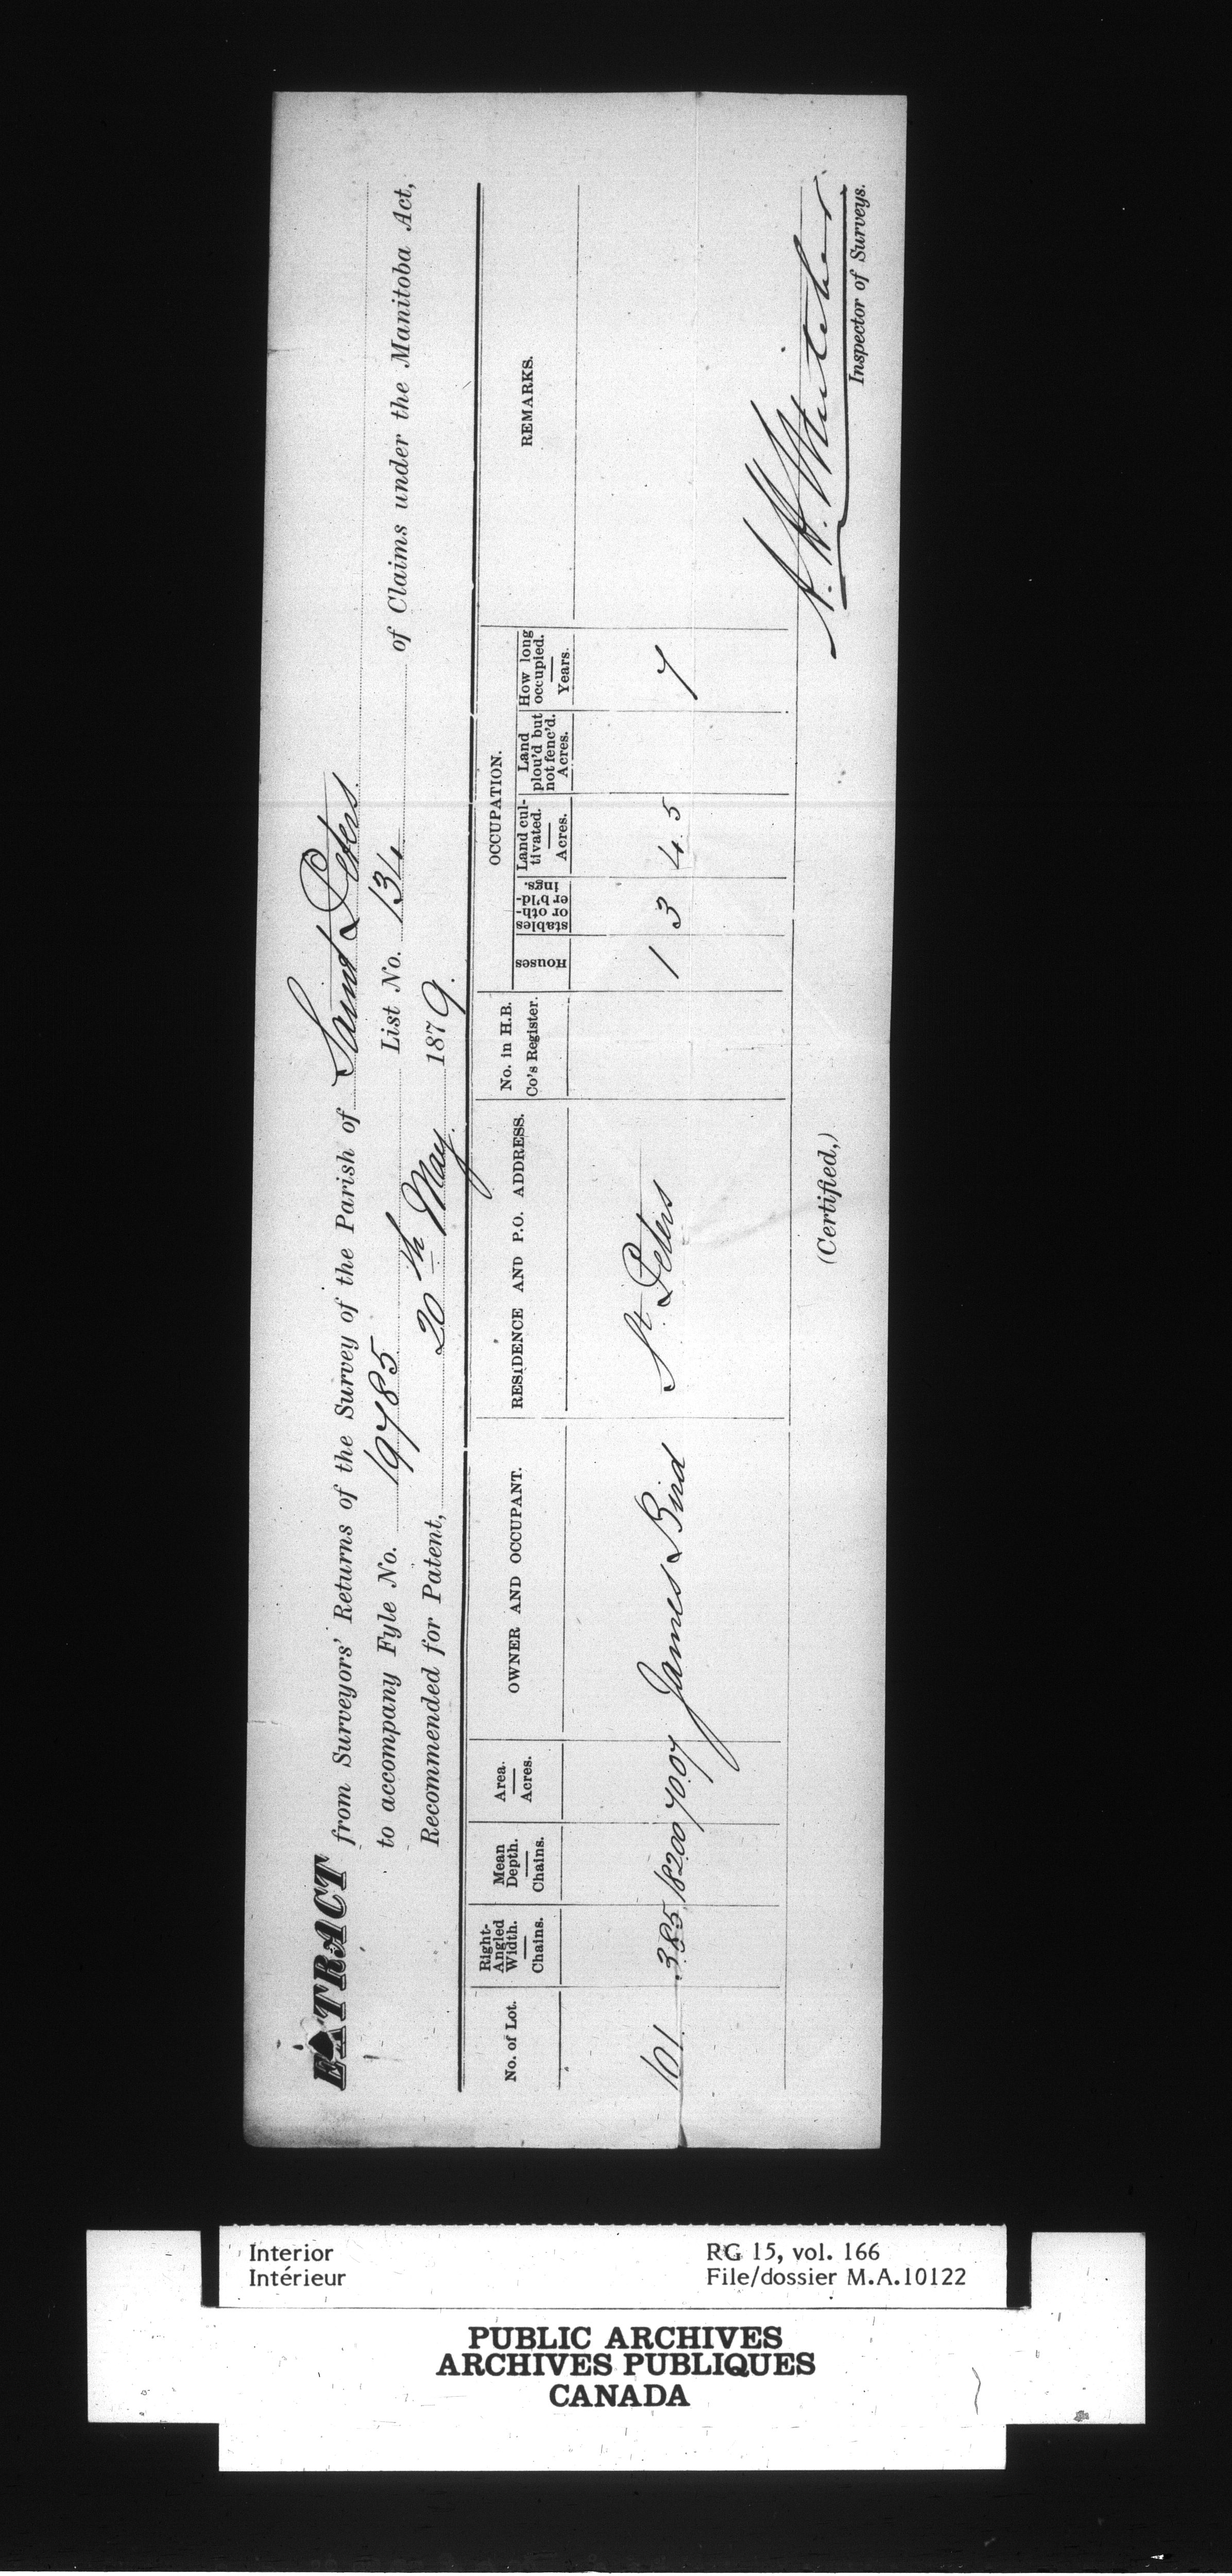 EXTRACT from Surveyors' Returns of the Survey of the Parish of Saint Peters
to accompany Fyle No. 19785 List No. 134 of Claims under the Manitoba Act,
Recommended for Patent, 20th May 1879.
No. of Lot.
Right-Angled Width. — Chains.
Mean Depth. — Chains.
Area. — Acres.
OWNER AND OCCUPANT.
RESIDENCE AND P.O. ADDRESS.
No. in H.B. Co's Register.
OCCUPATION.
Houses
stables or oth-er b'ld-ings.
Land cul-tivated. — Acres.
Land plou'd but not fenc'd. Acres.
How long occupied. — Years.
REMARKS.
101 385 18200 7007 James Bird St. Peters 1 3 4.5 7
(Certified,)
Inspector of Surveys.
Interior
Intérieur
RG 15, vol. 166
File/dossier M.A.10122
PUBLIC ARCHIVES
ARCHIVES PUBLIQUES
CANADA